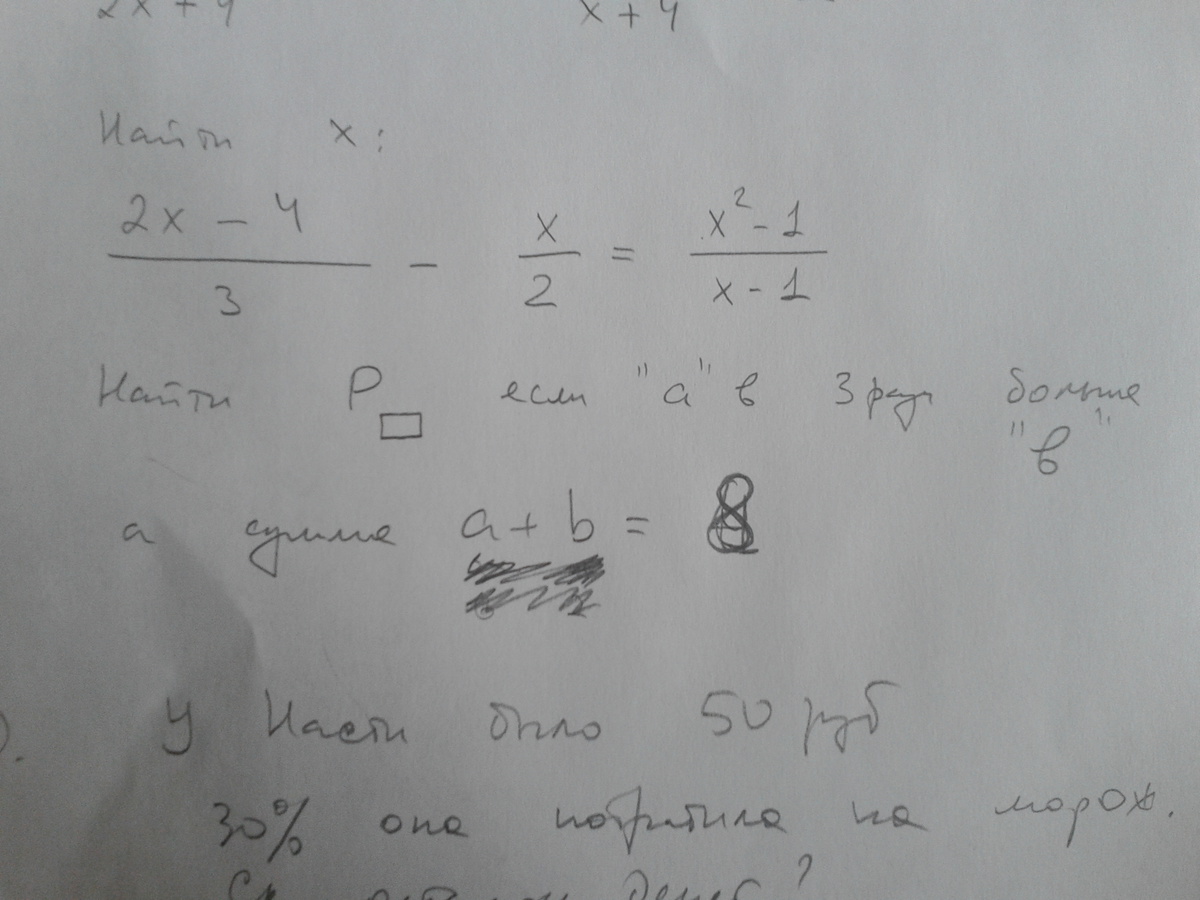 2x + 4 x + 4
Найти x:
2x - 4 / 3 - x / 2 = x² - 1 / x - 1
Найти P▭ если "а" в 3 раза больше
"в"
а сумма a + b = 8
У Насти было 50 руб
30% она потратила на морож.
денег?